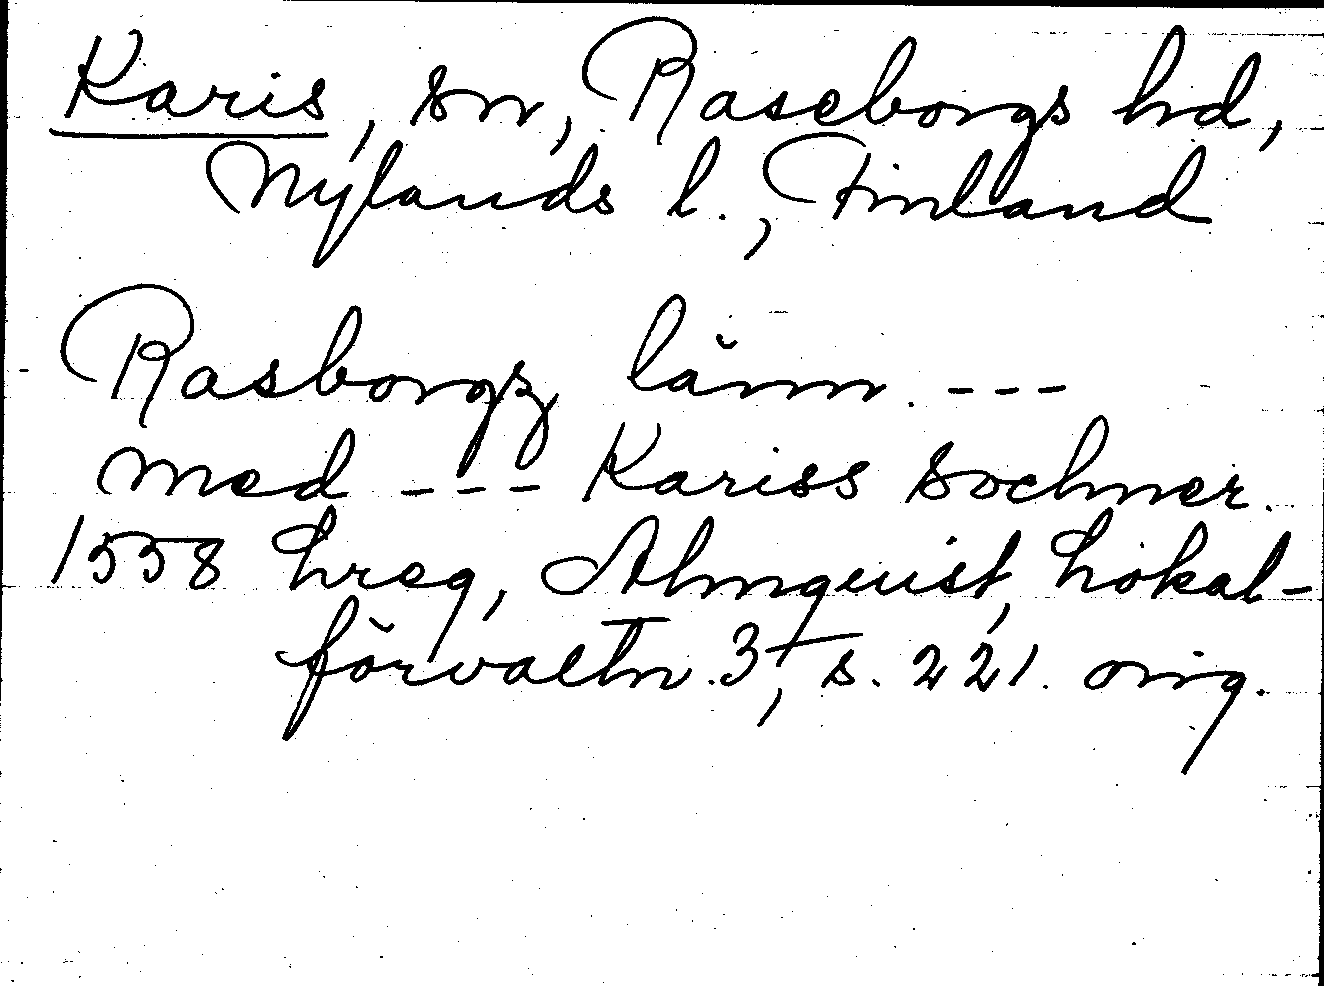 Karis, sn, Raseborgs hd,
Nylands l., Finland
Rasborgz länn. ---
med --- Kariss sochner.
1558 hreg, Almquist, Lokal-
förvaltn. 3, s. 221. orig.